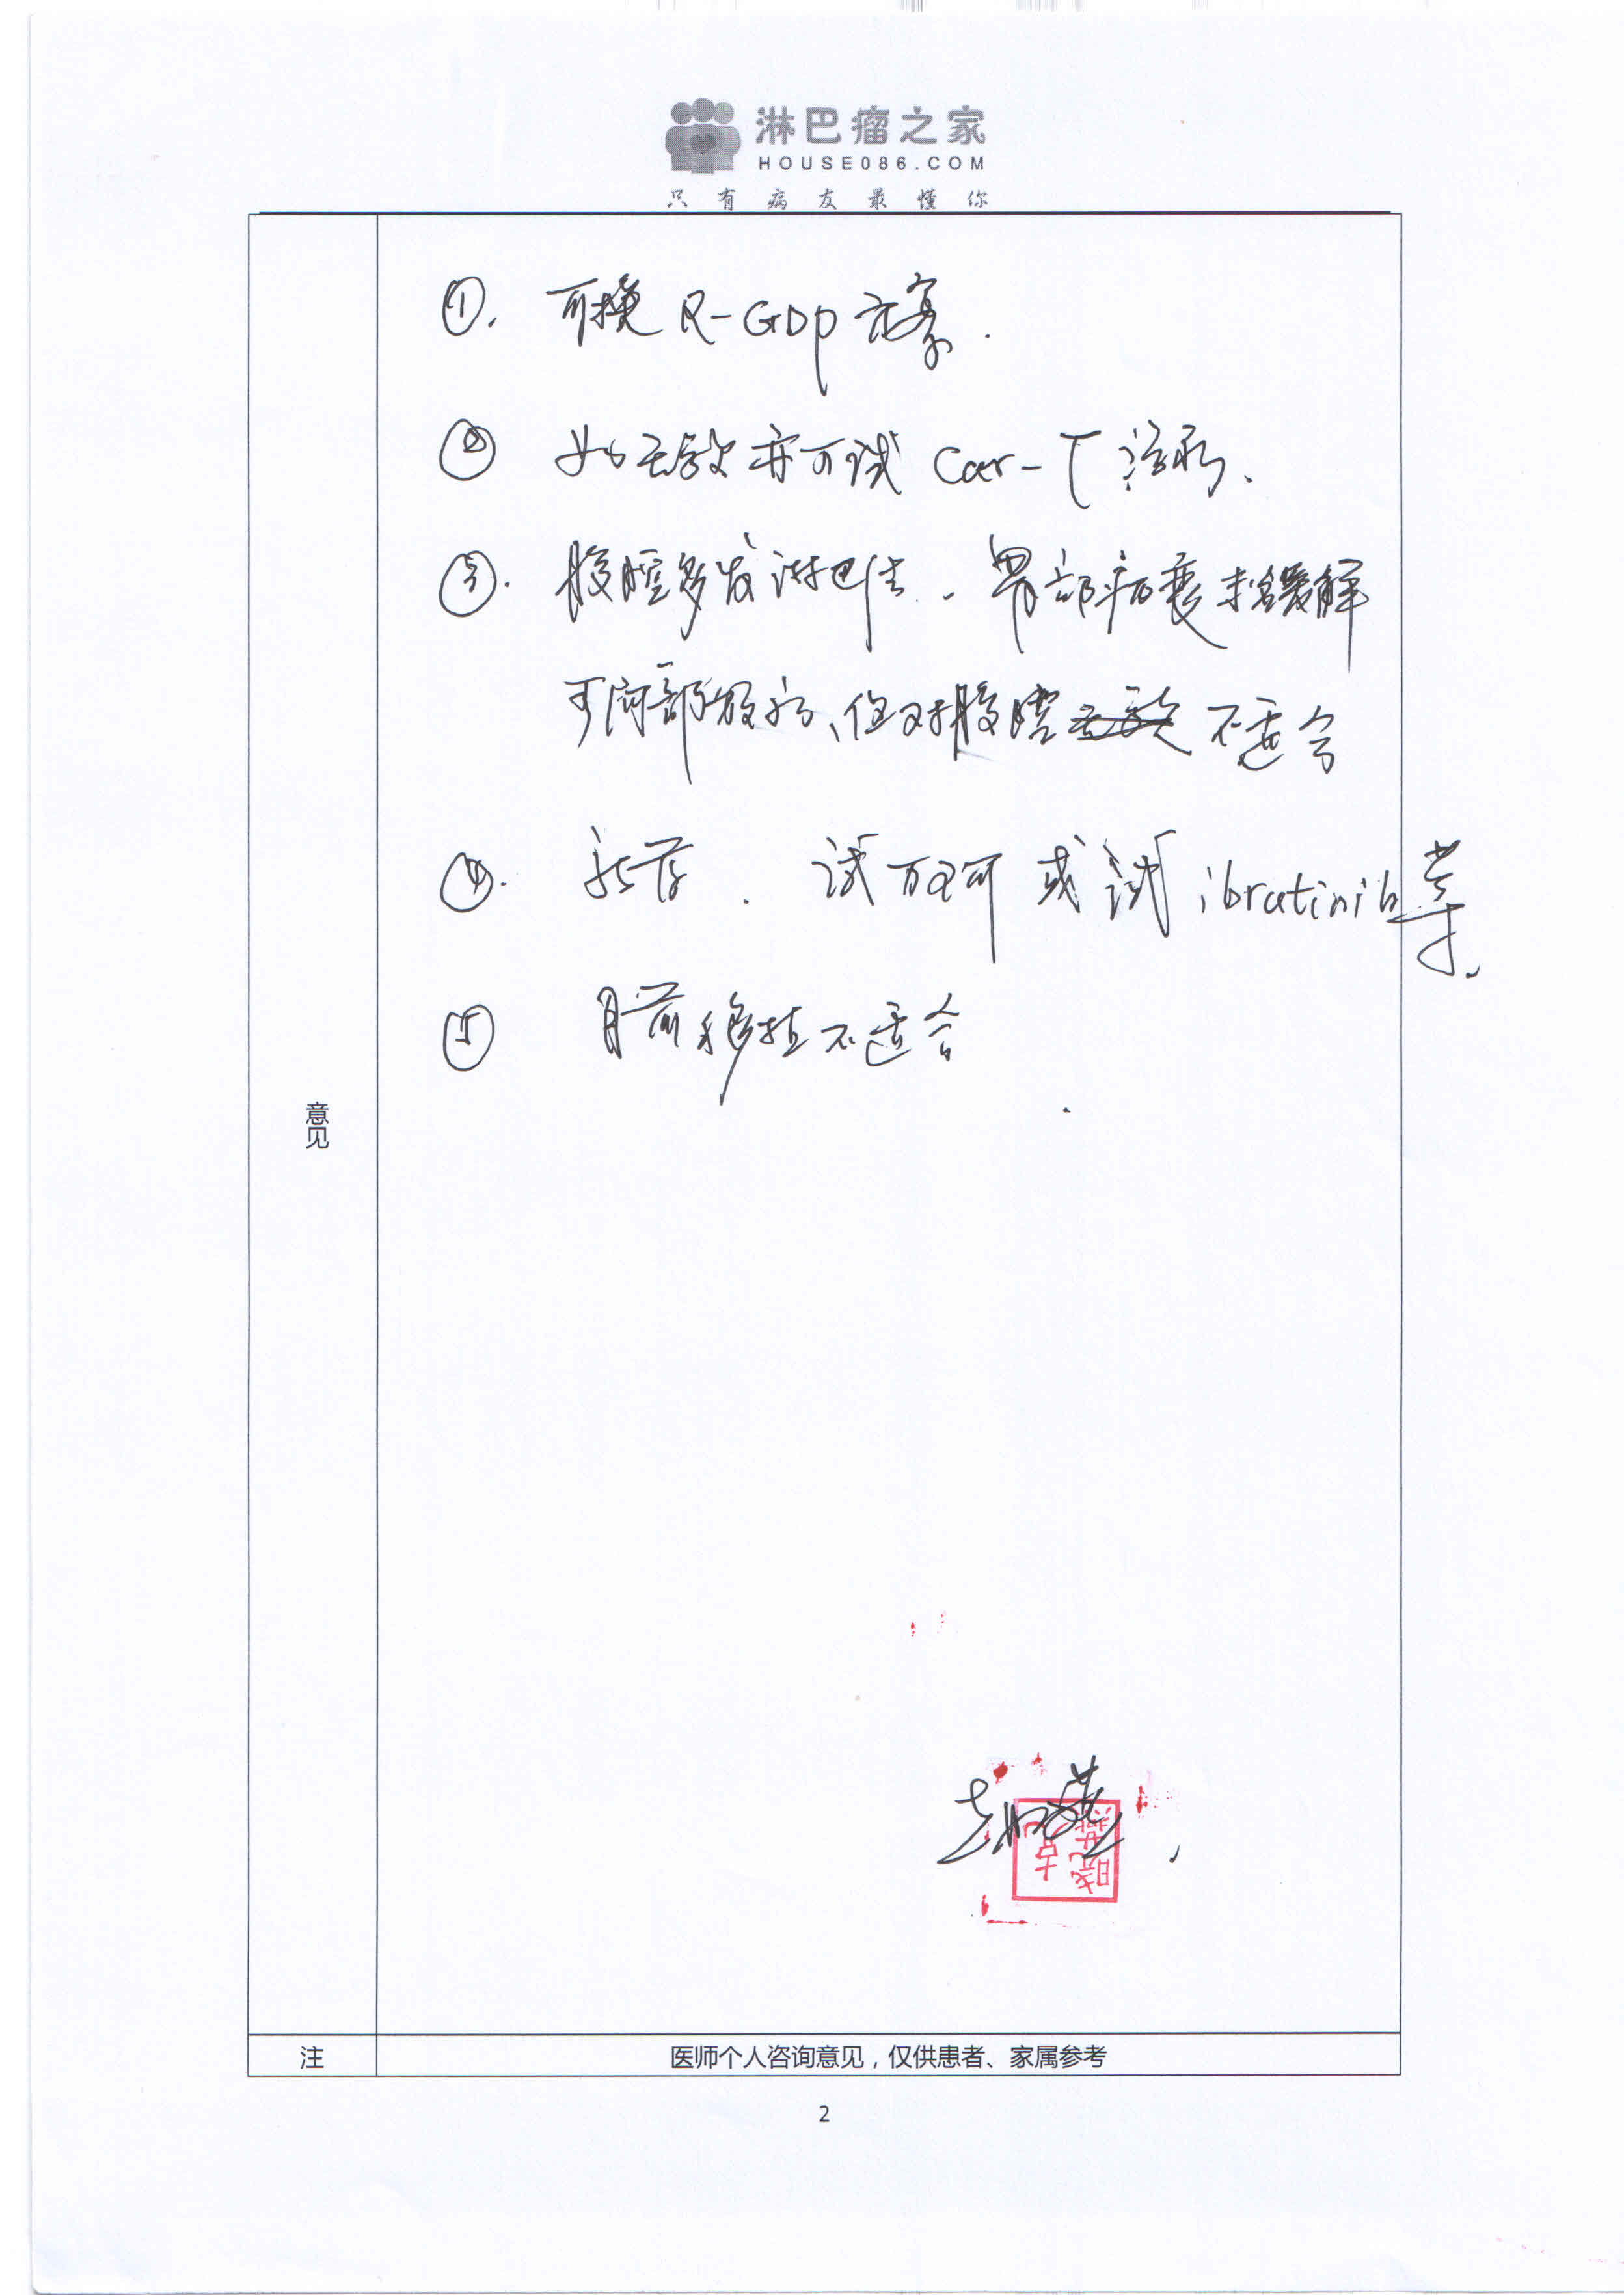 淋巴瘤之家
HOUSE086.COM
只有病友最懂你
①. 可换 R-GDP 方案.
② 如无效亦可试 Car-T 治疗.
③. 腹腔多发淋巴结. 胃部病变未缓解
可局部放疗、但对腹腔 不适合
④. 新药. 试万珂 或试 ibrutinib 等.
⑤ 目前移植不适合.
意见
注 医师个人咨询意见，仅供患者、家属参考
2